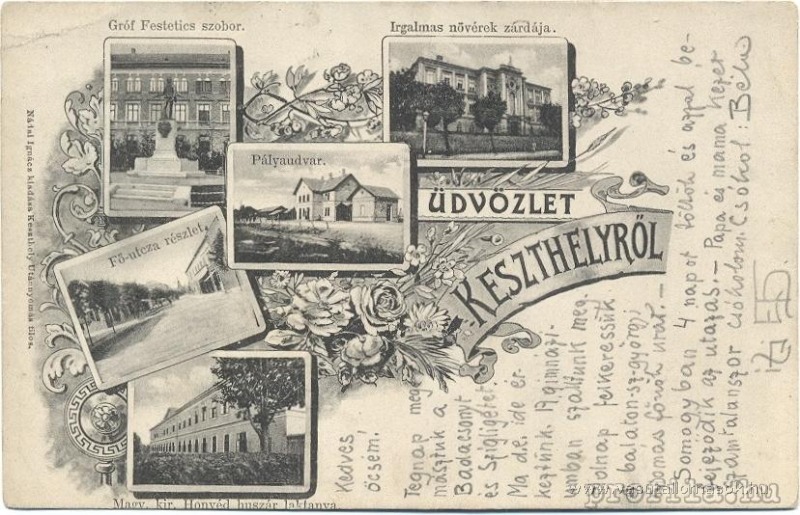 Gróf Festetics szobor.
Irgalmas nővérek zárdája.
Pályaudvar.
Fő-utcza részlet.
Magy. kir. Honvéd huszár laktanya.
ÜDVÖZLET
KESZTHELYRŐL
Nátai Ignácz kiadása Keszthely. Utánnyomás tilos.
Kedves
öcsém!
Tegnap meg-
másztuk a
Badacsonyt
és Szigligetet.
Ma d.e. ide ér-
keztünk. A gimnázi-
umban szálltunk meg.
Holnap felkeressük
a balaton-sz-györgyi
állomás főnök urat. –
Somogyban 4 napot töltök és azzal be-
fejeződik az utazás. – Papa és mama kezét
számtalanszor csókolom. Csókol: Béla